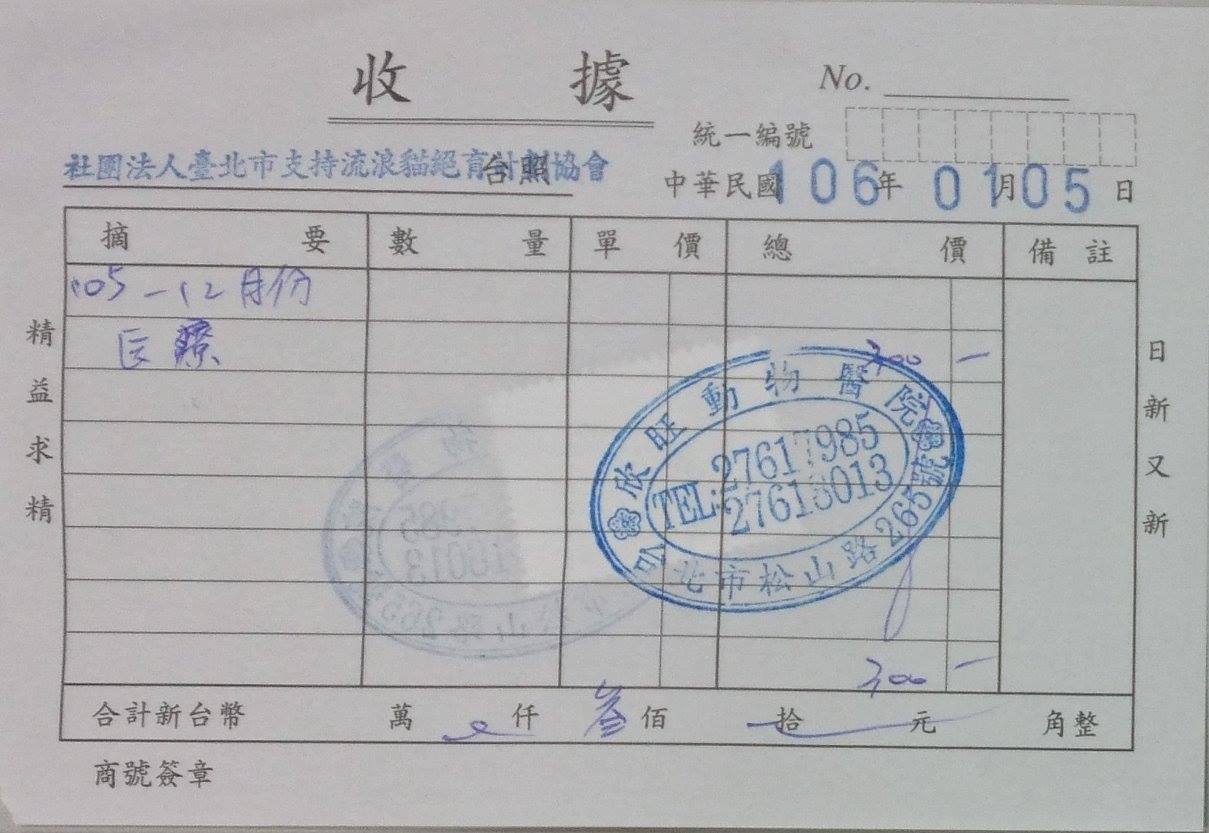 收據
No.
統一編號
社團法人臺北市支持流浪貓絕育計劃協會 台照
中華民國 106 年 01 月 05 日
摘要 數量 單價 總價 備註
105-12月份
医療 300 —
欣旺動物醫院
TEL: 27617985
27613013
北市松山路265號
300 —
合計新台幣 萬 仟 叁 佰 拾 元 角整
商號簽章
精益求精
日新又新